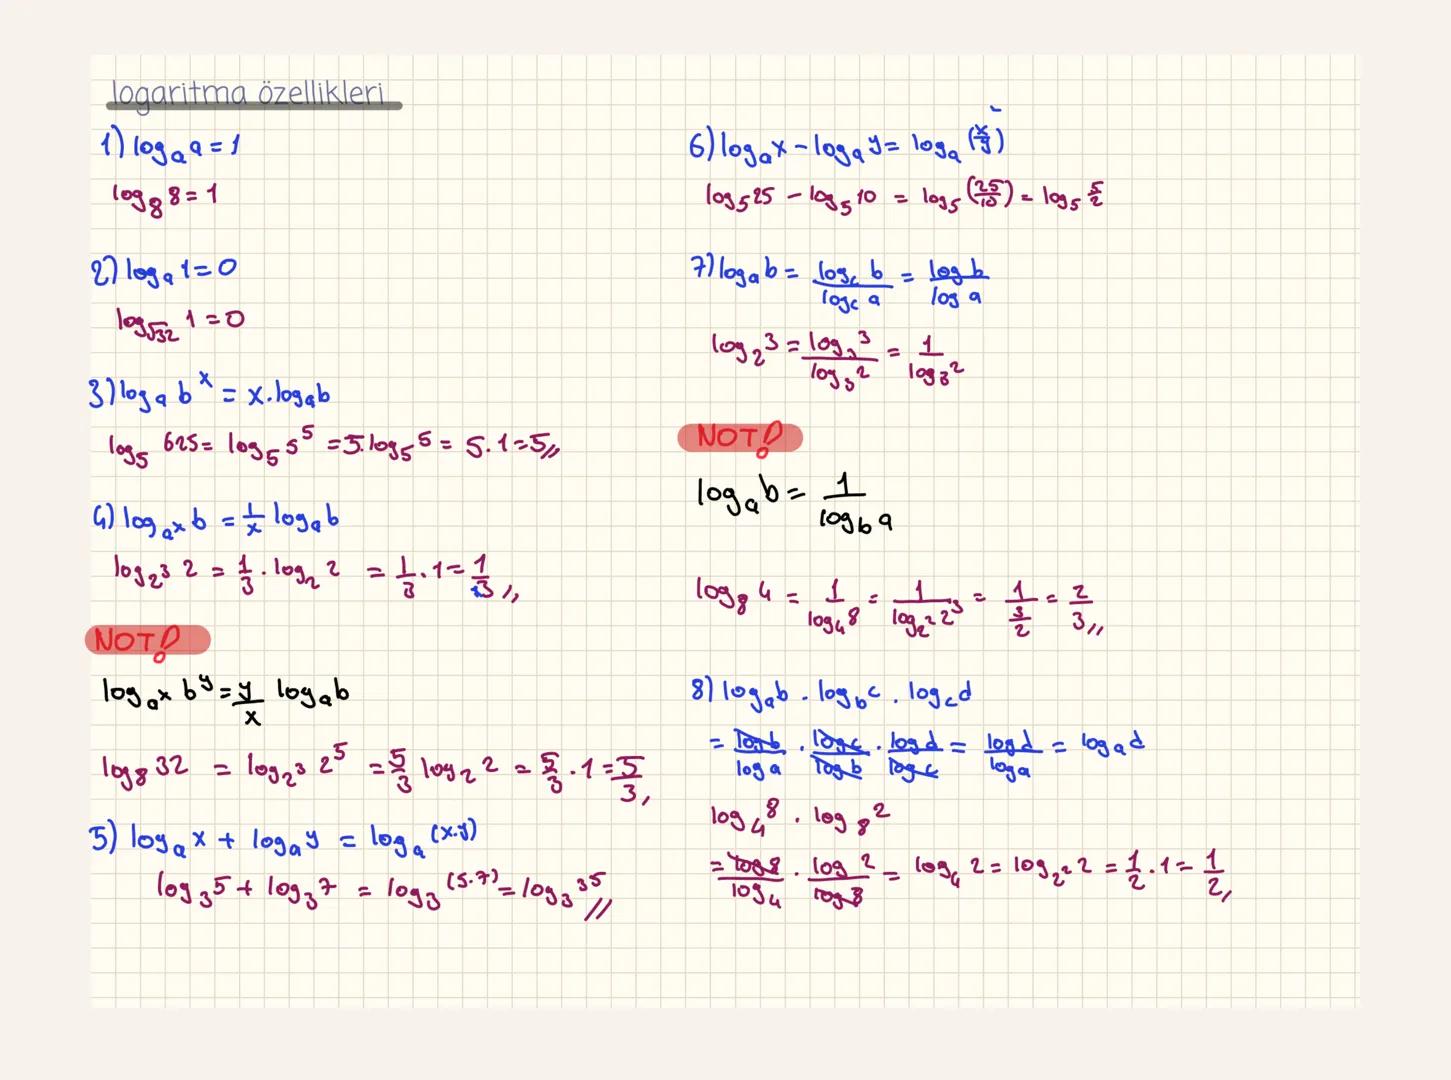 logaritma özellikleri
1) logₐ a = 1
log₈ 8 = 1
2) logₐ 1 = 0
log_√32 1 = 0
3) logₐ bˣ = x.logₐb
log₅ 625 = log₅ 5⁵ = 5.log₅5 = 5.1 = 5,,
4) log_aˣ b = 1/x logₐb
log_2³ 2 = 1/3 . log₂ 2 = 1/3 . 1 = 1/3,,
NOT!
log_aˣ bʸ = y/x logₐb
log₈ 32 = log_2³ 2⁵ = 5/3 log₂ 2 = 5/3 . 1 = 5/3,
5) logₐ x + logₐ y = logₐ (x.y)
log₃ 5 + log₃ 7 = log₃ (5.7) = log₃ 35 //
6) logₐ x - logₐ y = logₐ (x/y)
log₅ 25 - log₅ 10 = log₅ (25/10) = log₅ 5/2
7) logₐ b = log_c b / log_c a = log b / log a
log₂ 3 = log₃ 3 / log₃ 2 = 1 / log₃ 2
NOT!
logₐ b = 1 / log_b a
log₈ 4 = 1 / log₄ 8 = 1 / log_2² 2³ = 1 / (3/2) = 2/3,,
8) logₐb . log_b c . log_c d
= log b / log a . log c / log b . log d / log c = log d / log a = logₐ d
log₄ 8 . log₈ 2
= log 8 / log 4 . log 2 / log 8 = log₄ 2 = log_2² 2 = 1/2 . 1 = 1/2,